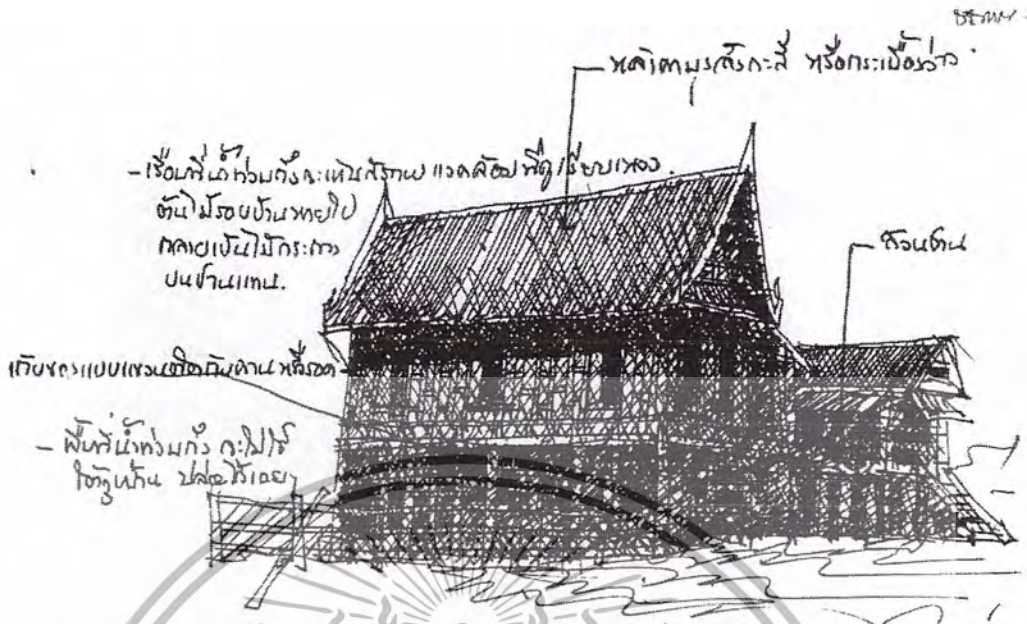 หลังคามุงสังกะสี หรือกระเบื้องว่าว
- เรือนที่น้ำท่วมถึงจะเห็นสภาพแวดล้อมที่ดูเงียบเหงา
ต้นไม้รอบบ้านหายไป
กลายเป็นไม้กระถาง
บนบ้านแทน.
ส่วนชาน
แขวนติดกับคาน หรือรอด
- พื้นที่น้ำท่วมถึง จะไม่ใช้
ใต้ถุนบ้าน ปล่อยไว้เฉยๆ